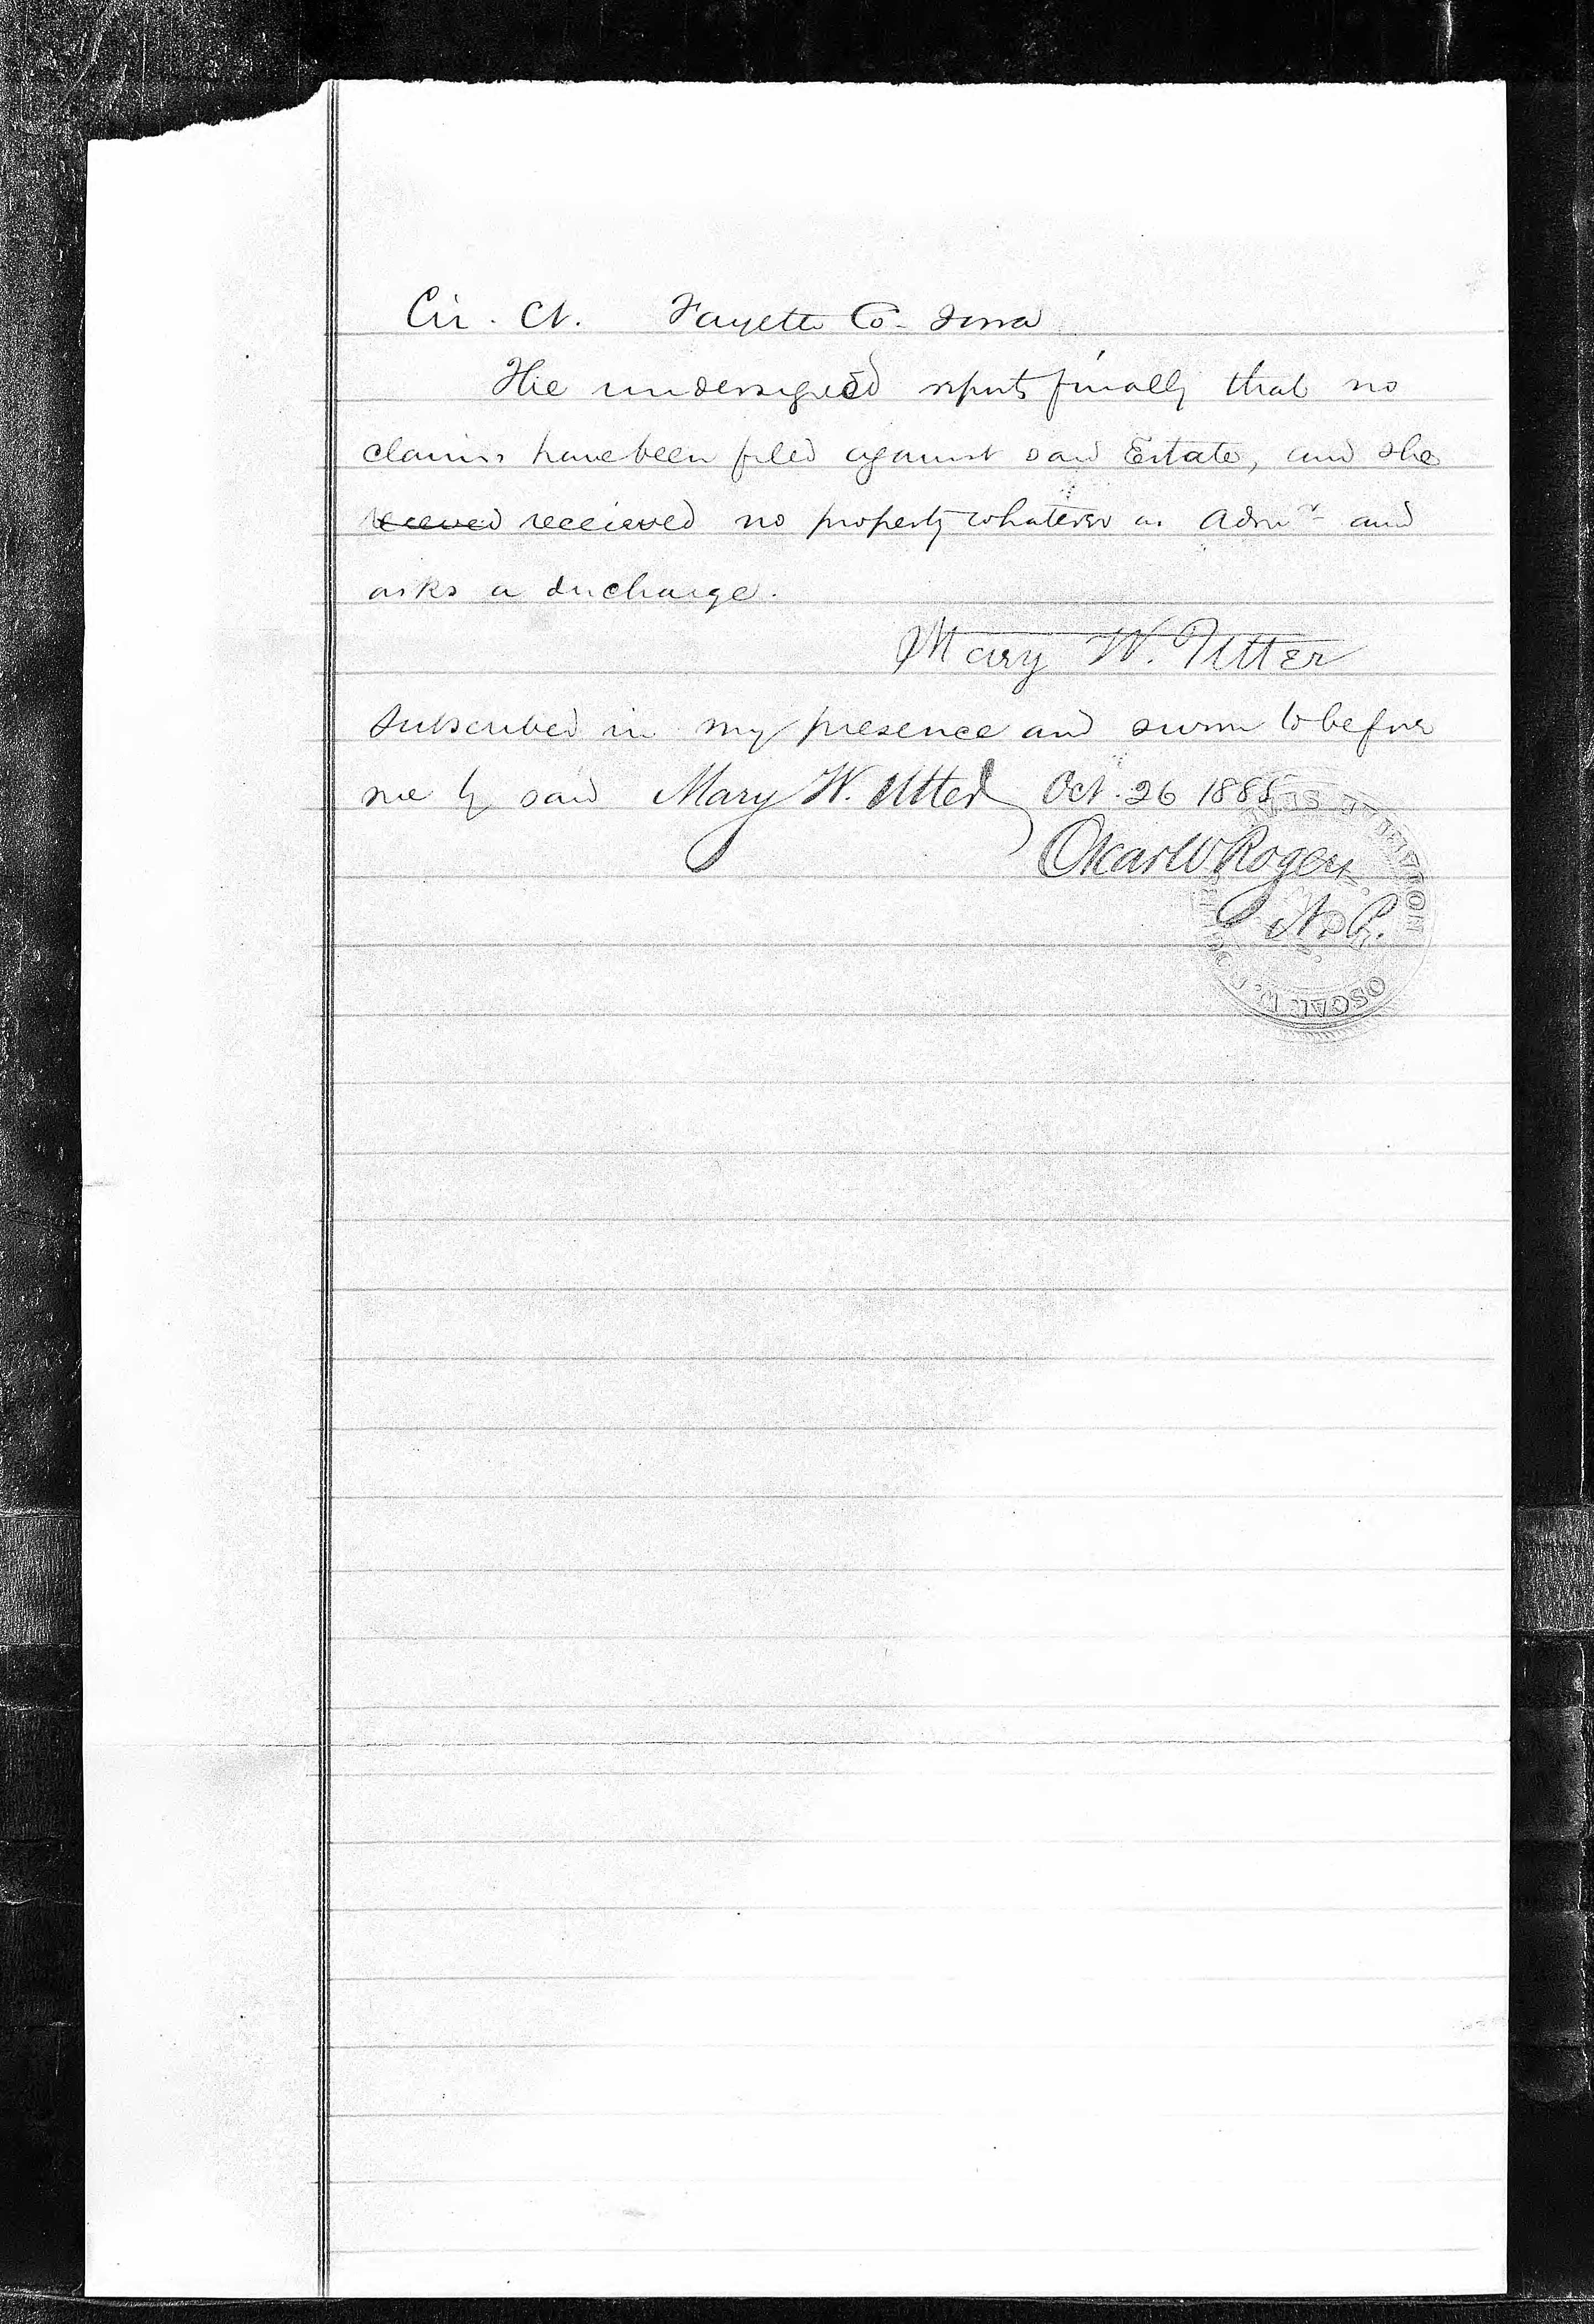 Cir. Ct. Fayette Co. Iowa
The undersigned reports finally that no
claims have been filed against said Estate, and she
receved recieved no property whatever as Admr and
asks a discharge.
Mary W. Utter
Subscribed in my presence and sworn to before
me by said Mary W. Utter Oct. 26 1885
Oscar W Rogers
N. P.
OSCAR W.